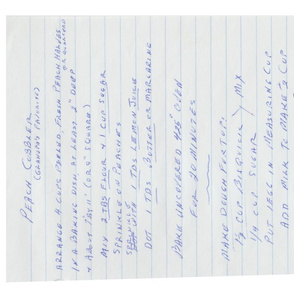 PEACH COBBLER
(GRANDPA'S FAVORITE)
ARRANGE 4 CUPS PEELED FRESH PEACH HALVES
OR QUARTERS
IN A BAKING DISH AT LEAST 2" DEEP
& ABOUT 7 8 IN (OR 8" SQUARE)
MIX 2 TBS FLOUR & 1 CUP SUGAR
SPRINKLE ON PEACHES
SPRINKLE WITH 1 TBS LEMON JUICE
DOT 1 TBS BUTTER OR MARGARINE
BAKE UNCOVERED 425° OVEN
FOR 20 MINUTES
MAKE DOUGH FOR TOP:
1/2 CUP BISQUICK } MIX
1/4 CUP SUGAR
PUT 1 EGG IN MEASURING CUP
ADD MILK TO MAKE CUP